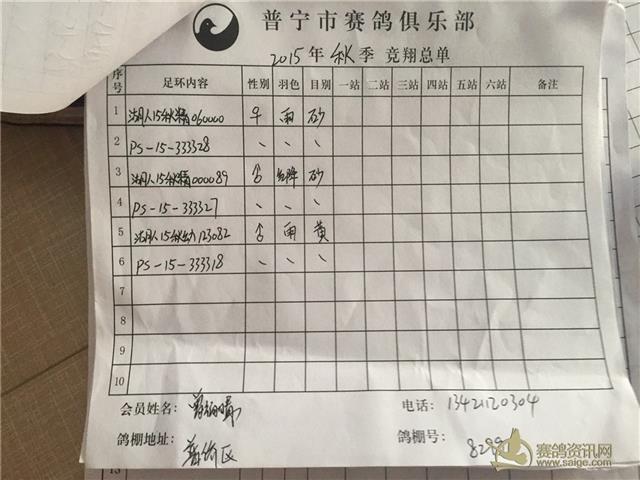 普宁市赛鸽俱乐部
2015年 秋 季 竞翔总单
序号 足环内容 性别 羽色 目别 一站 二站 三站 四站 五站 六站 备注
1 湖人15秋精060000 ♀ 雨 砂
2 PS-15-333328 、 、 、
3 湖人15秋精000089 ♂ 红绛 砂
4 PS-15-333327 、 、 、
5 湖人15秋幼123082 ♂ 雨 黄
6 PS-15-333318 、 、 、
7
8
9
10
会员姓名: 电话: 13421120304
鸽棚地址: 区 鸽棚号: 829
赛鸽资讯网
www.saige.com
13